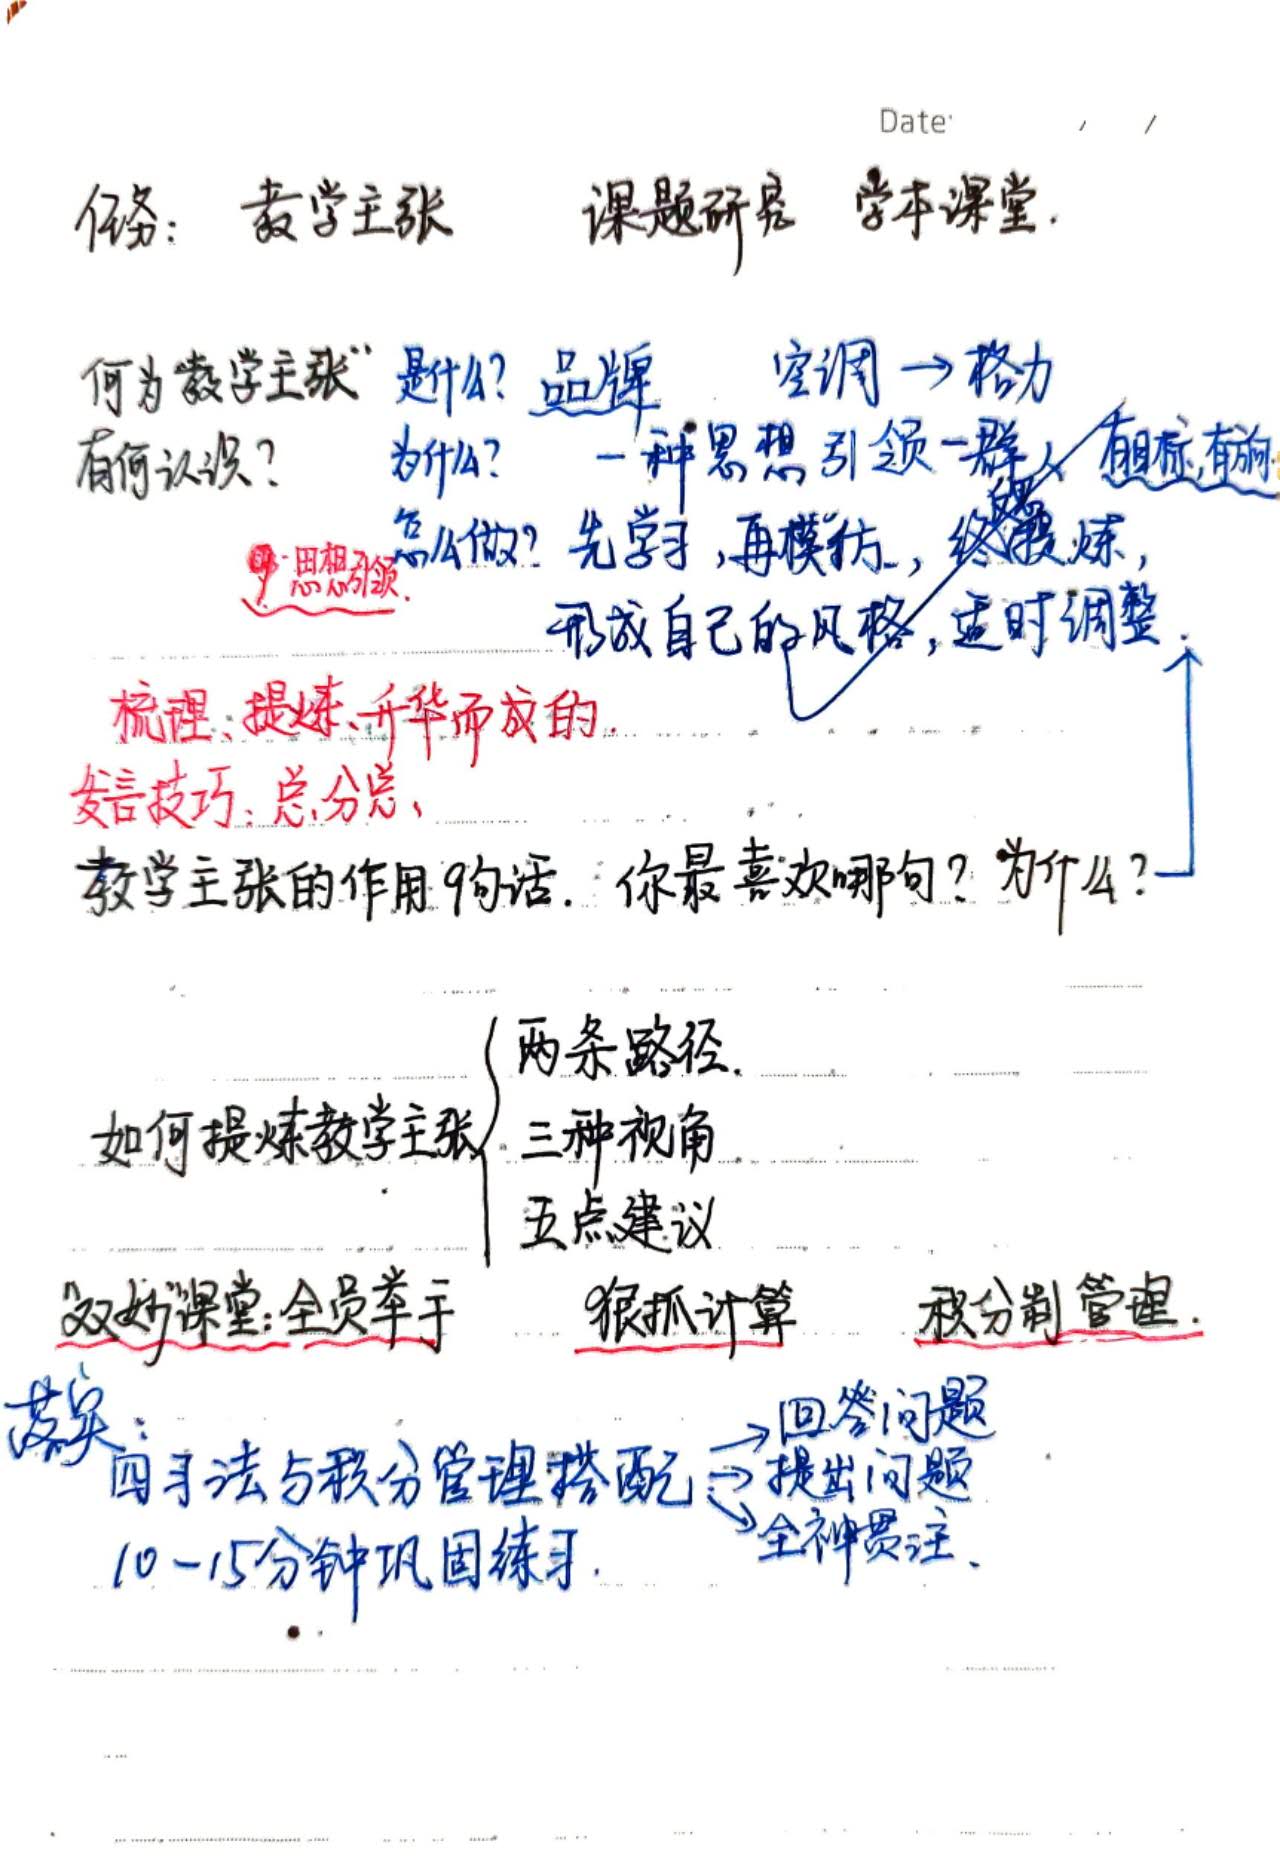 Date: / /
任务: 教学主张 课题研究 学本课堂.
何为"教学主张" 是什么? 品牌 空调→格力
有何认识? 为什么? 一种思想引领一群人 有目标,有方向.
怎么做? 先学习,再模仿,终提炼,
思想引领.
形成自己的风格,适时调整.
梳理、提炼、升华而成的.
发言技巧:总分总、
教学主张的作用9句话. 你最喜欢哪句? 为什么?
两条路径.
如何提炼教学主张 三种视角
五点建议
"双妙"课堂:全员举手 狠抓计算 积分制管理.
落实:
四习法与积分管理搭配 →回答问题
→提出问题
→全神贯注.
10-15分钟巩固练习.